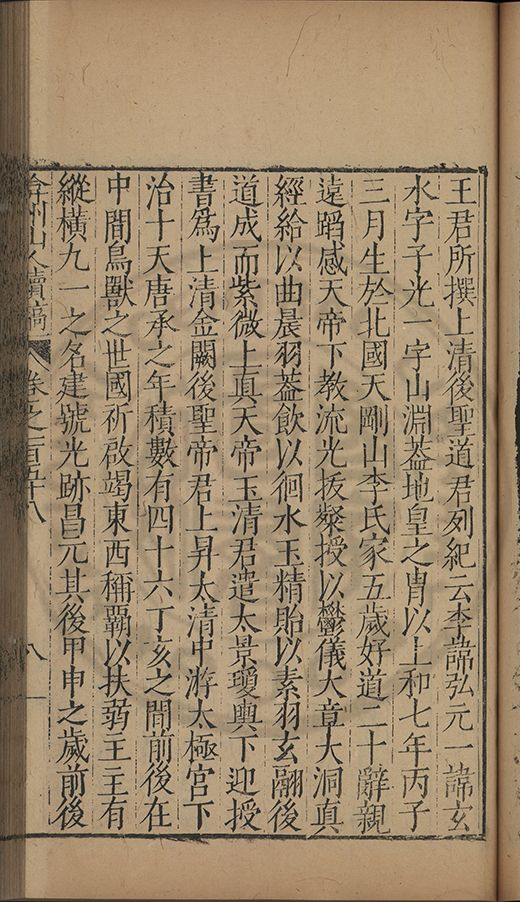 王君所撰上清後聖道君列紀云李諱弘元一諱玄
水字子光一字山淵葢地皇之胄以上和七年丙子
三月生於北國天剛山李氏家五歲好道二十辭親
遠蹈感天帝下教流光扳粲授以鬱儀大章大洞真
經給以曲晨羽葢飲以徊水玉精貽以素羽玄翮後
道成而紫微上真天帝玉清君遣太景瓊輿下迎授
書爲上清金闕後聖帝君上昇太清中游太極宮下
治十天唐承之年積數有四十六丁亥之間前後在
中間鳥獸之世國祈啟竭東西稱覇以扶弱王王有
縱橫九一之名建號光跡昌元其後甲申之歲前後
弇州山人續稿 卷之一百五十八 八